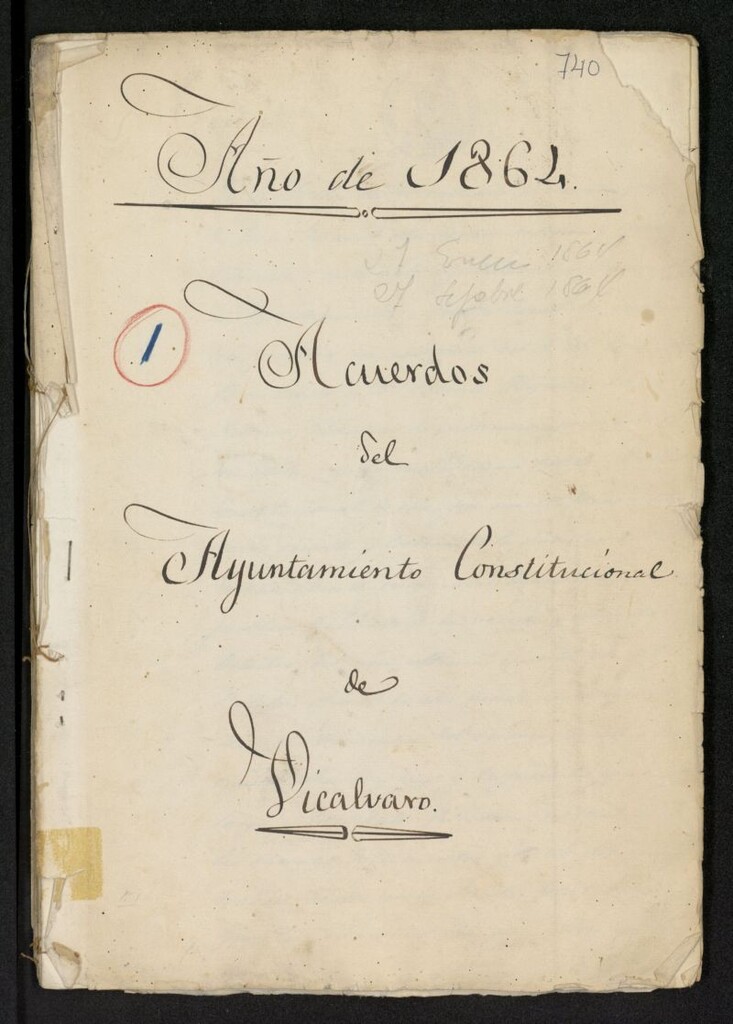 740
Año de 1864.
Enero 1864
27
1
Acuerdos
del
Ayuntamiento Constitucional
de
Vicalvaro.